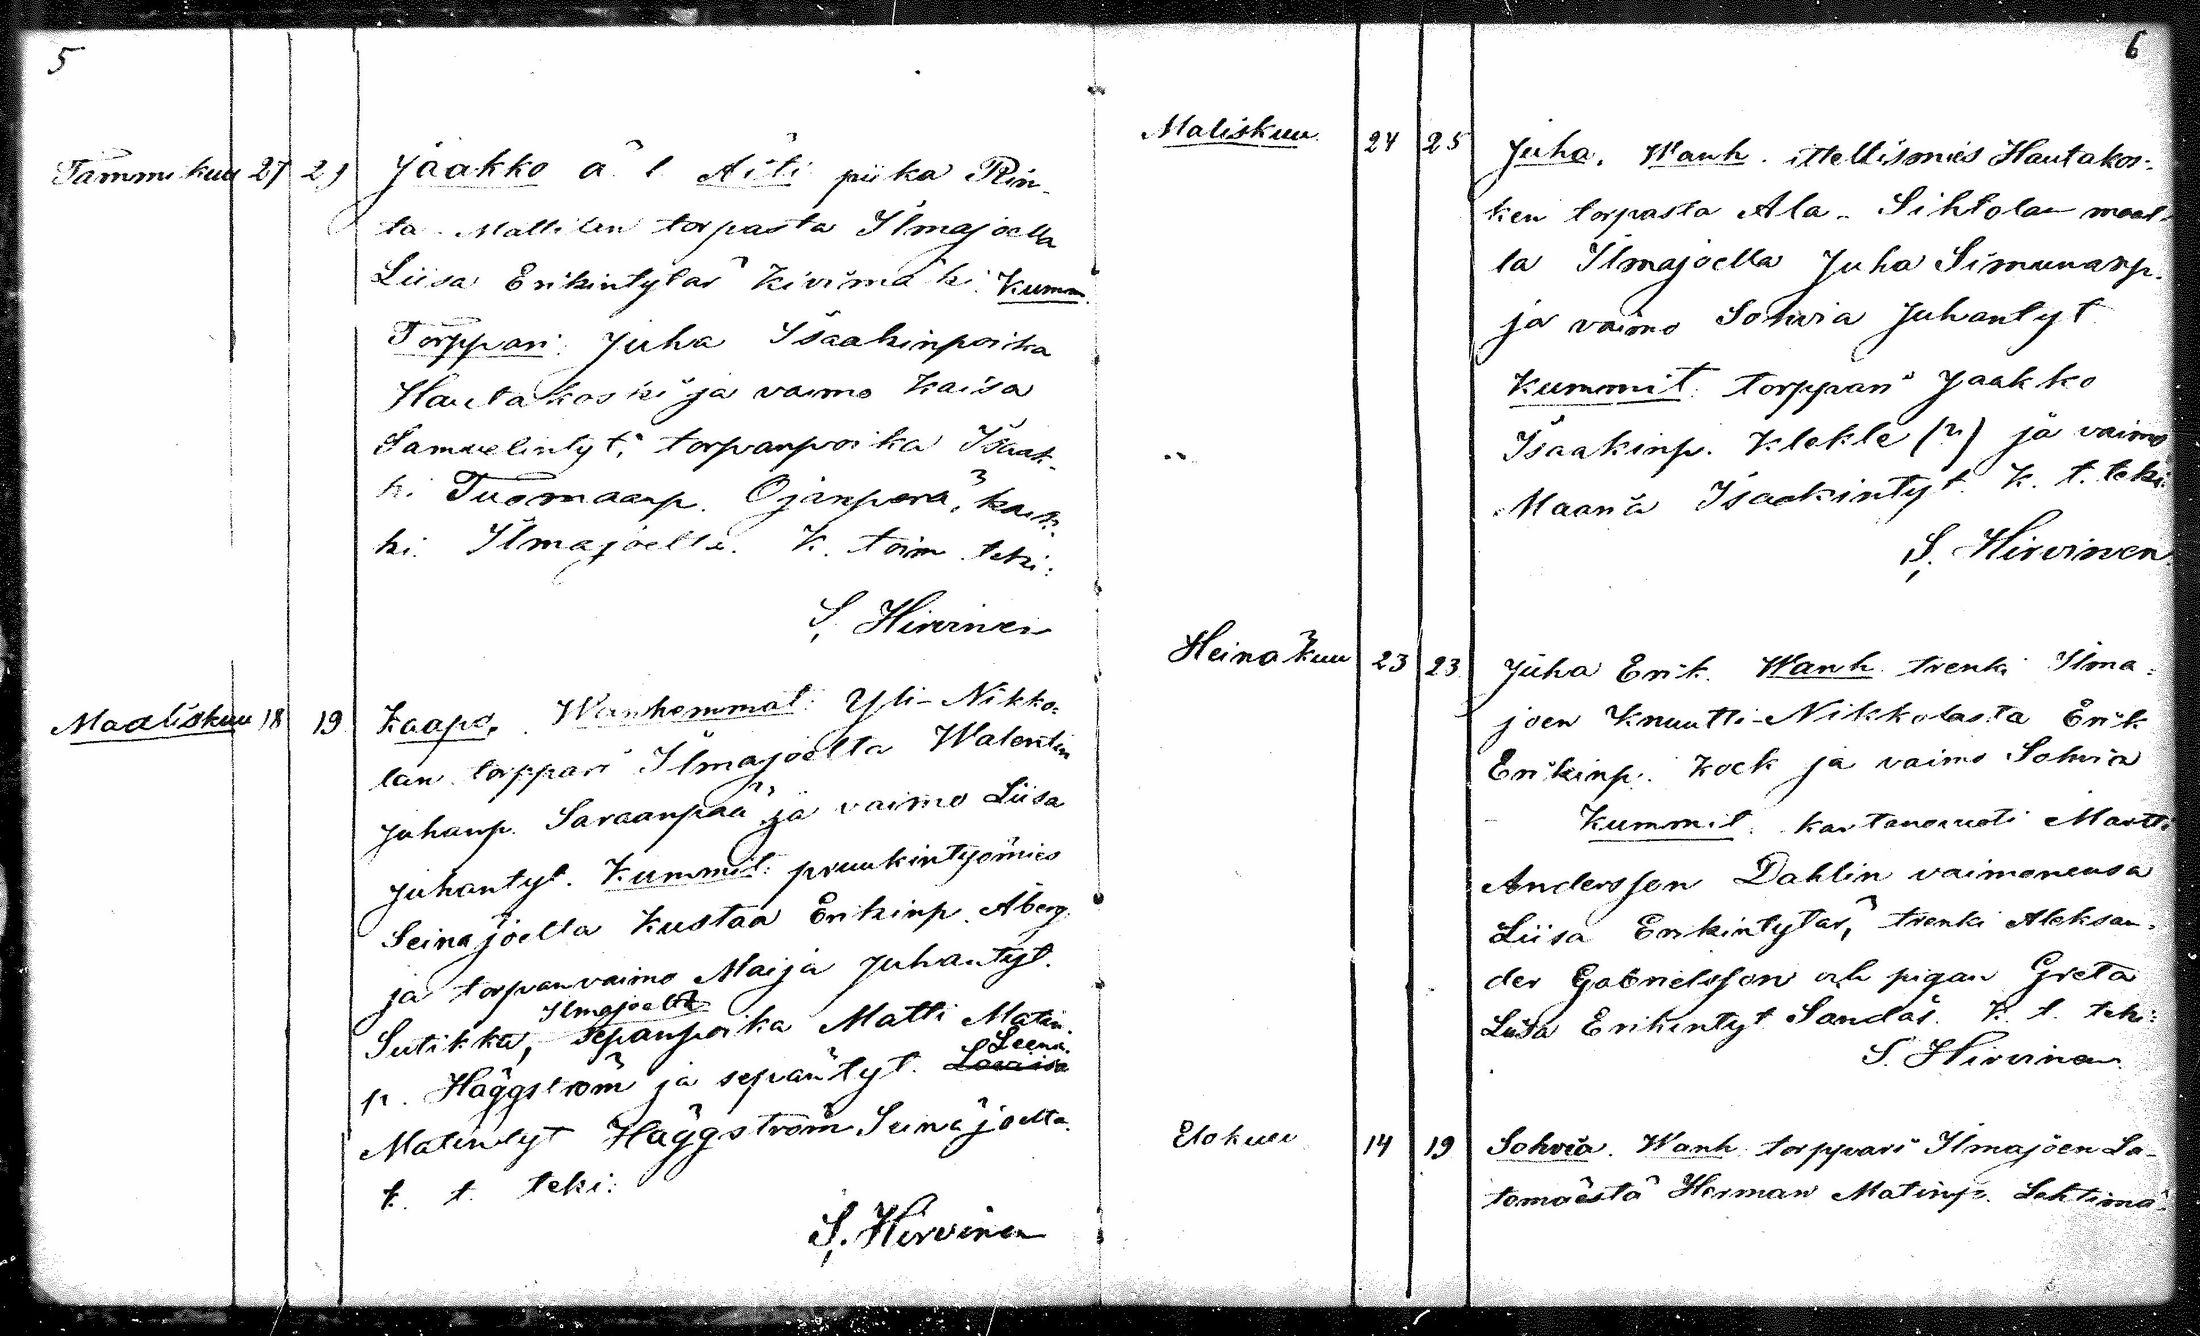 5
Tammikuu 27 29 Jaakko ä l Äiti piika Rin-
ta-Mattilan torpasta Ilmajoella
Liisa Erikintytär Kivimäki. Kumm.
Torppari Juha Isaakinpoika
Hautakoski ja vaimo Kaisa
Samuelintyt; torpanpoika Isaak-
ki Tuomaanp. Ojanperä, kaik-
ki Ilmajoella. K. toim teki:
S. Hirvinen
Maaliskuu 18 19 Kaapo, Wanhemmat: Yli-Nikko-
lan torppari Ilmajoelta Walentin
Juhanp. Saraanpää ja vaimo Liisa
Juhantyt. Kummit: pruukintyömies
Seinäjoella Kustaa Erikinp. Åberg
ja torpanvaimo Maija Juhantyt.
Ilmajoelta
Sutikka, sepänpoika Matti Matin-
Leena
p. Häggström ja sepäntyt. Lovisa
Matintyt Häggström Seinäjoelta.
k. t. teki:
S. Hirvinen
6
Maliskuu 24 25 Juha, Wanh. ittellismies Hautakos-
ken torpasta Ala-Sihtolan maal-
la Ilmajoella Juha Simunanp.
ja vaimo Sohvia Juhantyt
Kummit: torppari Jaakko
Isaakinp. Klekle (?) ja vaimo
Maaria Isaakintyt. K. t. teki:
S. Hirvinen
Heinäkuu 23 23 Juha Erik. Wanh. trenki Ilma-
joen Knuutti-Nikkolasta Erik
Erikinp. Kock ja vaimo Sohvia
Kummit: kartanovuoti Martti
Andersson Dahlin vaimonensa
Liisa Erikintytär, trenki Aleksan-
der Gabrielsson och pigan Greta
Liisa Erikintyt. Sandås. K. t. teki:
S. Hirvinen
Elokuu 14 19 Sohvia. Wanh. torppari Ilmajoen La-
tomäestä Herman Matinp. Lehtimä-